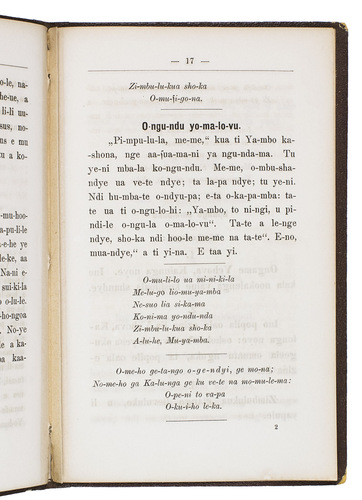 — 17 —
Zi-mbu-lu-kua sho-ka
O-mu-ṡi-go-na.
O-ngu-ndu yo-ma-lo-vu.
„Pi-mpu-lu-la, me-me,“ kua ti Ya-mbo ka-
shona, nge aa-ṡua-ma-ni ya ngu-nda-ma. Tu
ye-ni mba-la ko-ngu-ndu. Me-me, o-mbu-sha-
ndye ua ve-te ndye; ta la-pa ndye; tu ye-ni.
Ndi hu-mba-te o-ndyu-pa; e-ta o-ka-pa-mba: ta-
te ua ti o-ngu-lo-hi: „Ya-mbo, to ni-ngi, u pi-
ndi-le o-ngu-la o-ma-lo-vu“. Ta-te a le-nge
ndye, sho-ka ndi hoo-le me-me na ta-te“. E-no,
mua-ndye,“ a ti yi-na. E taa yi.
O-mu-li-lo ua mi-ni-ki-la
Me-lu-go lio-mu-ya-mba
Ne-suo lia si-ka-ma
Ko-ni-ma yo-ndu-nda
Zi-mbu-lu-kua sho-ka
A-lu-he, Mu-ya-mba.
O-me-ho ge-ta-ngo o-ge-ndyi, ge mo-na;
No-me-ho ga Ka-lu-nga ge ku ve-te na mo-mu-le-ma:
O-pe-ni to va-pa
O-ku-i-ho le-ka.
2